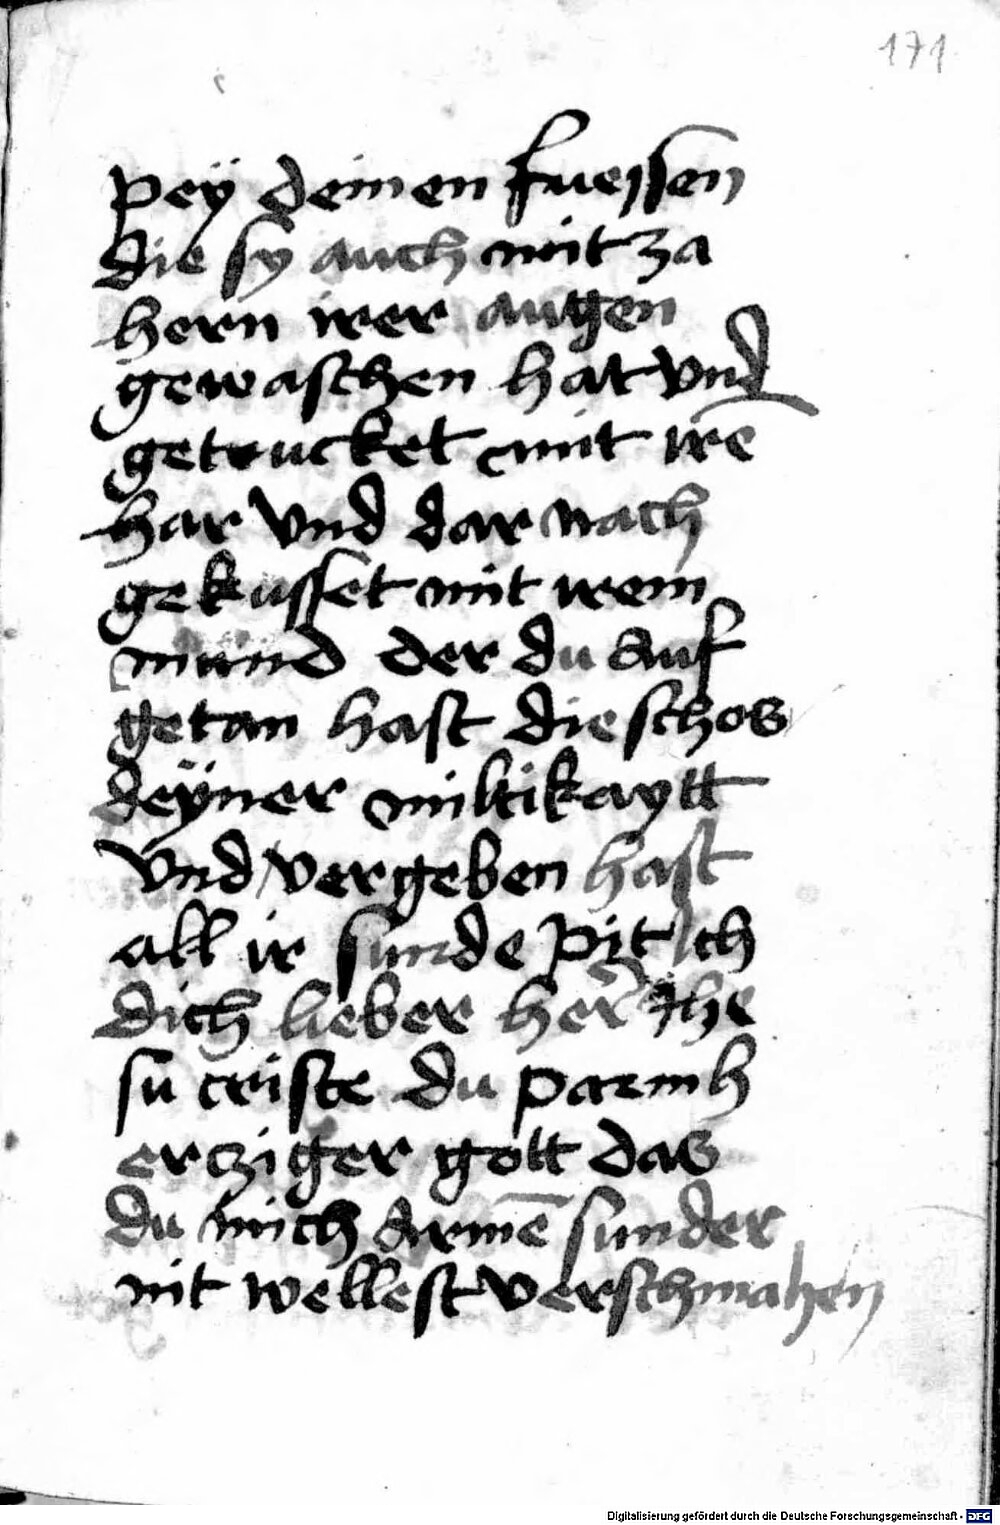 171
pey deinen fuessen
die sy auch mit za
hern irer augen
gewaschen hat vnd
getrucket mit irē
har vnd dar nach
gekusset mit irem
mund der du auf
getan hast die schos
deÿner miltikaytt
vnd vergeben hast
all ir sunde Pit ich
dich lieber her̃ Jhe
su criste du parmh
ercziger gott das
du mich armē sunder
nit wellest verschmahen
Digitalisierung gefördert durch die Deutsche Forschungsgemeinschaft - DFG